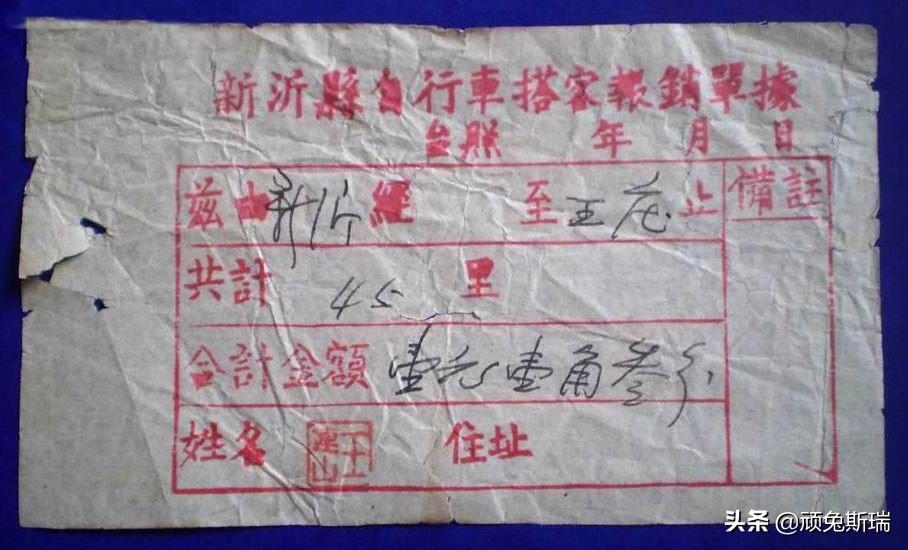 新沂縣自行車搭客報銷單據
台照 年 月 日
茲由新沂經 至王庄止 備註
共計 45 里
合計金額 壹元壹角叁分
姓名 住址
头条 @顽兔斯瑞